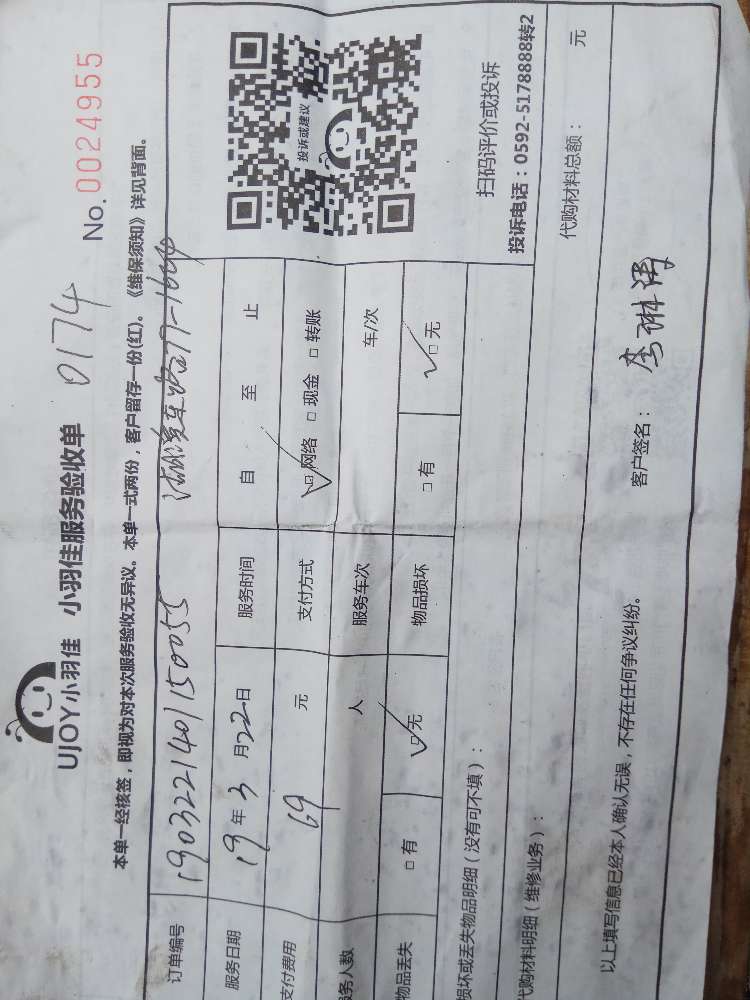 UJOY小羽佳 小羽佳服务验收单 0174 No.0024955
本单一经核签，即视为对本次服务验收无异议。本单一式两份，客户留存一份(红)。《维保须知》详见背面。
订单编号 1903221401150055
服务日期 19年3月22日 服务时间 自 至 止
支付费用 69 元 支付方式 ☑网络 □现金 □转账
务人数 人 服务车次 车/次
物品丢失 □有 ☑无 物品损坏 □有 ☑无
投诉或建议
扫码评价或投诉
投诉电话：0592-5178888转2
损坏或丢失物品明细（没有可不填）：
代购材料明细（维修业务）： 代购材料总额： 元
以上填写信息已经本人确认无误，不存在任何争议纠纷。 客户签名： 李琳涛